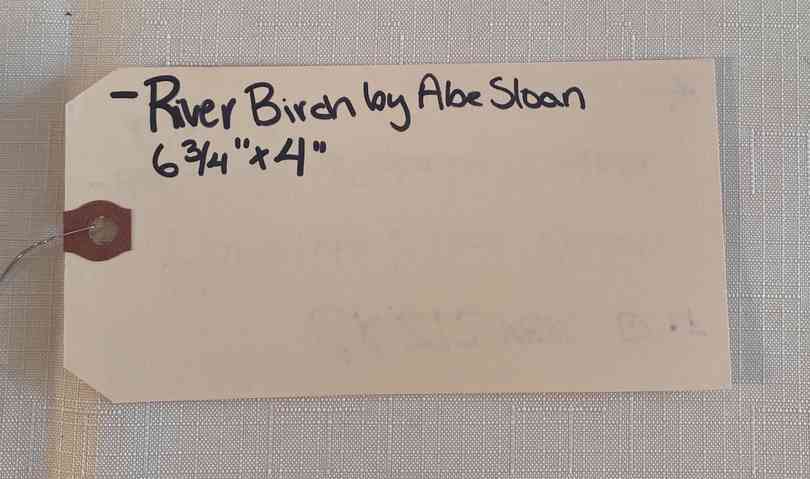 - River Birch by Abe Sloan
6 3/4" x 4"